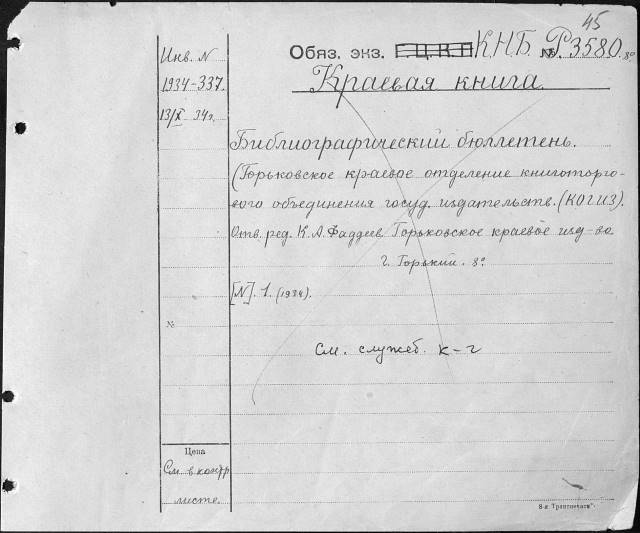 45
Обяз. экз. Г.Ц.К.П К.Н.Б. № Р3580. 8°
Инв. N
1934-337.
13/X 34г.
Краевая книга
Библиографический бюллетень.
(Горьковское краевое отделение книготорго-
вого объединения госуд. издательств. (КОГИЗ).
Отв. ред. К.А. Фаддеев. Горьковское краевое изд-во
г. Горький. 8°
[N]. 1. (1934).
№
См. служеб. к-г
Цена
См. в контр
листе.